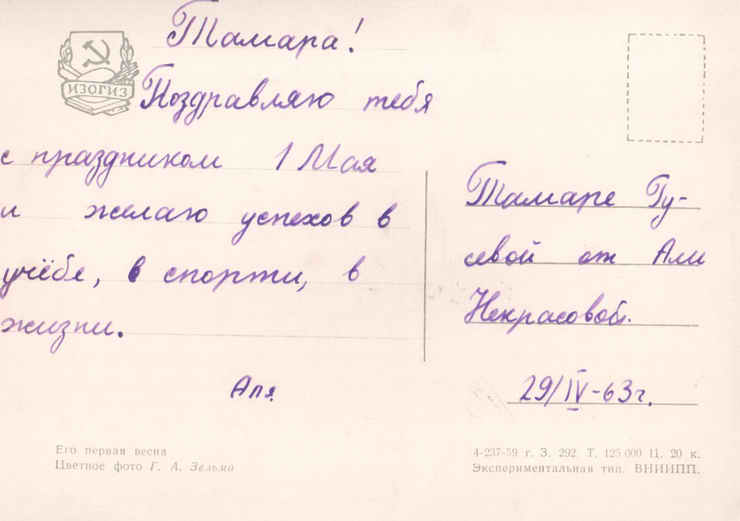 ИЗОГИЗ
Тамара!
Поздравляю тебя
с праздником 1 Мая
и желаю успехов в
учёбе, в спорти, в
жизни.
Аля.
Тамаре Гу-
севой от Али
Некрасовой.
29/IV-63г.
Его первая весна
Цветное фото Г. А. Зельма
4-237-59 г. З. 292. Т. 125 000 Ц. 20 к.
Экспериментальная тип. ВНИИПП.